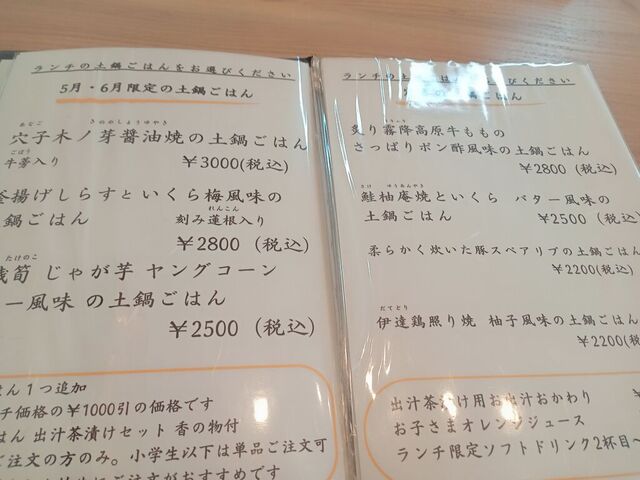 ランチの土鍋ごはんをお選びください
5月・6月限定の土鍋ごはん
あなご きのめしょうゆやき
穴子木ノ芽醤油焼の土鍋ごはん
ごぼう
牛蒡入り ￥3000(税込)
釜揚げしらすといくら梅風味の
れんこん
鍋ごはん 刻み蓮根入り
￥2800 (税込)
たけのこ
筍 じゃが芋 ヤングコーン
ー風味 の土鍋ごはん
￥2500 (税込)
はん1つ追加
チ価格の￥1000引の価格です
はん 出汁茶漬けセット 香の物付
ご注文の方のみ。小学生以下は単品ご注文可
ご注文がおすすめです
ランチの土 は びください
ごはん
炙り霧降高原牛ももの
さっぱりポン酢風味の土鍋ごはん
￥2800 (税込)
さけ ゆうあんやき
鮭柚庵焼といくら バター風味の
土鍋ごはん ￥2500 (税込)
柔らかく炊いた豚スペアリブの土鍋ごはん
￥2200(税込)
だてとり
伊達鶏照り焼 柚子風味の土鍋ごはん
￥2200(税込)
出汁茶漬け用お出汁おかわり ￥
お子さまオレンジジュース
ランチ限定ソフトドリンク2杯目～